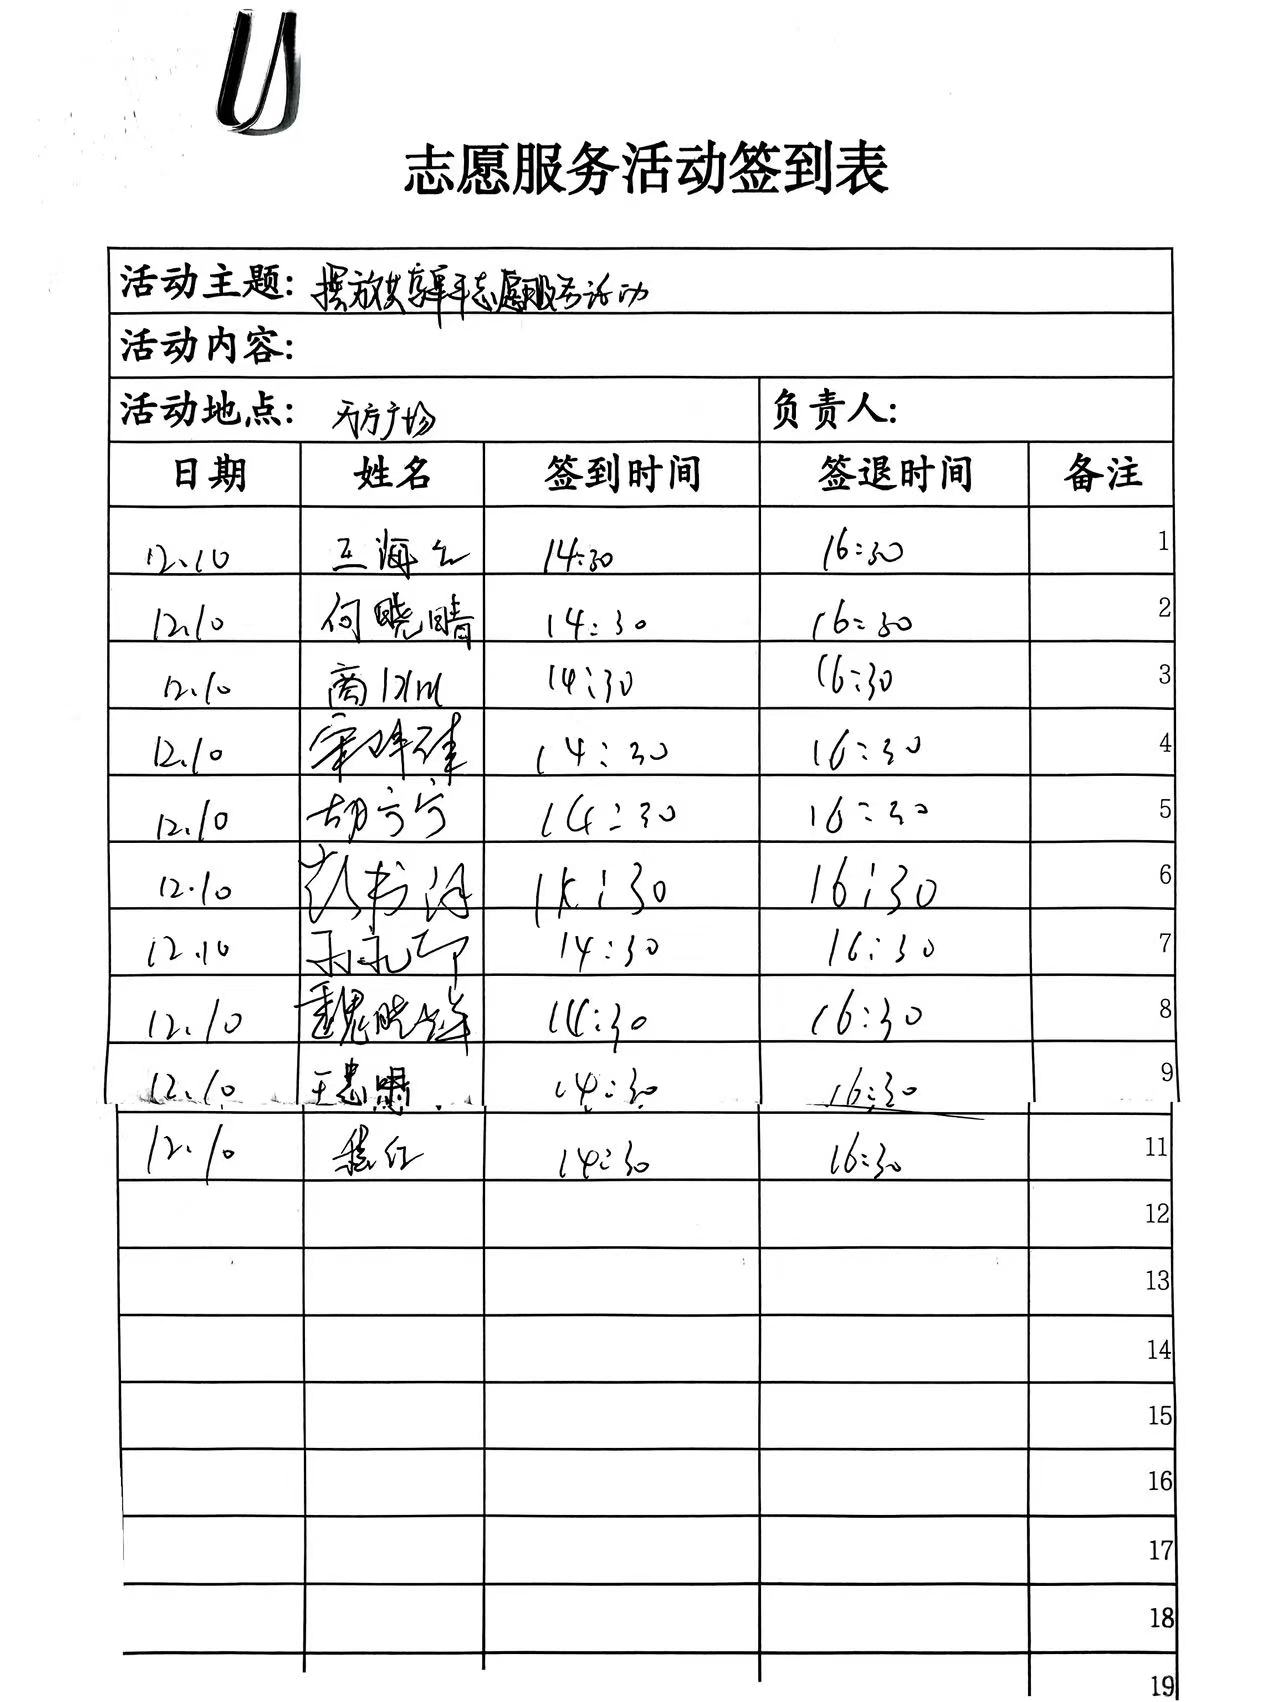 志愿服务活动签到表
活动主题: 摆放共享单车志愿服务活动
活动内容:
活动地点: 万方广场 负责人:
日期 姓名 签到时间 签退时间 备注
12.10 王海 14:30 16:30 1
12.10 何晓晴 14:30 16:30 2
12.10 商 14:30 16:30 3
12.10 14:30 16:30 4
12.10 胡 14:30 16:30 5
12.10 书 :30 16:30 6
12.10 14:30 16:30 7
12.10 魏晓 14:30 16:30 8
12.10 王惠 14:30 16:30 9
12.10 红 14:30 16:30 11
12
13
14
15
16
17
18
19